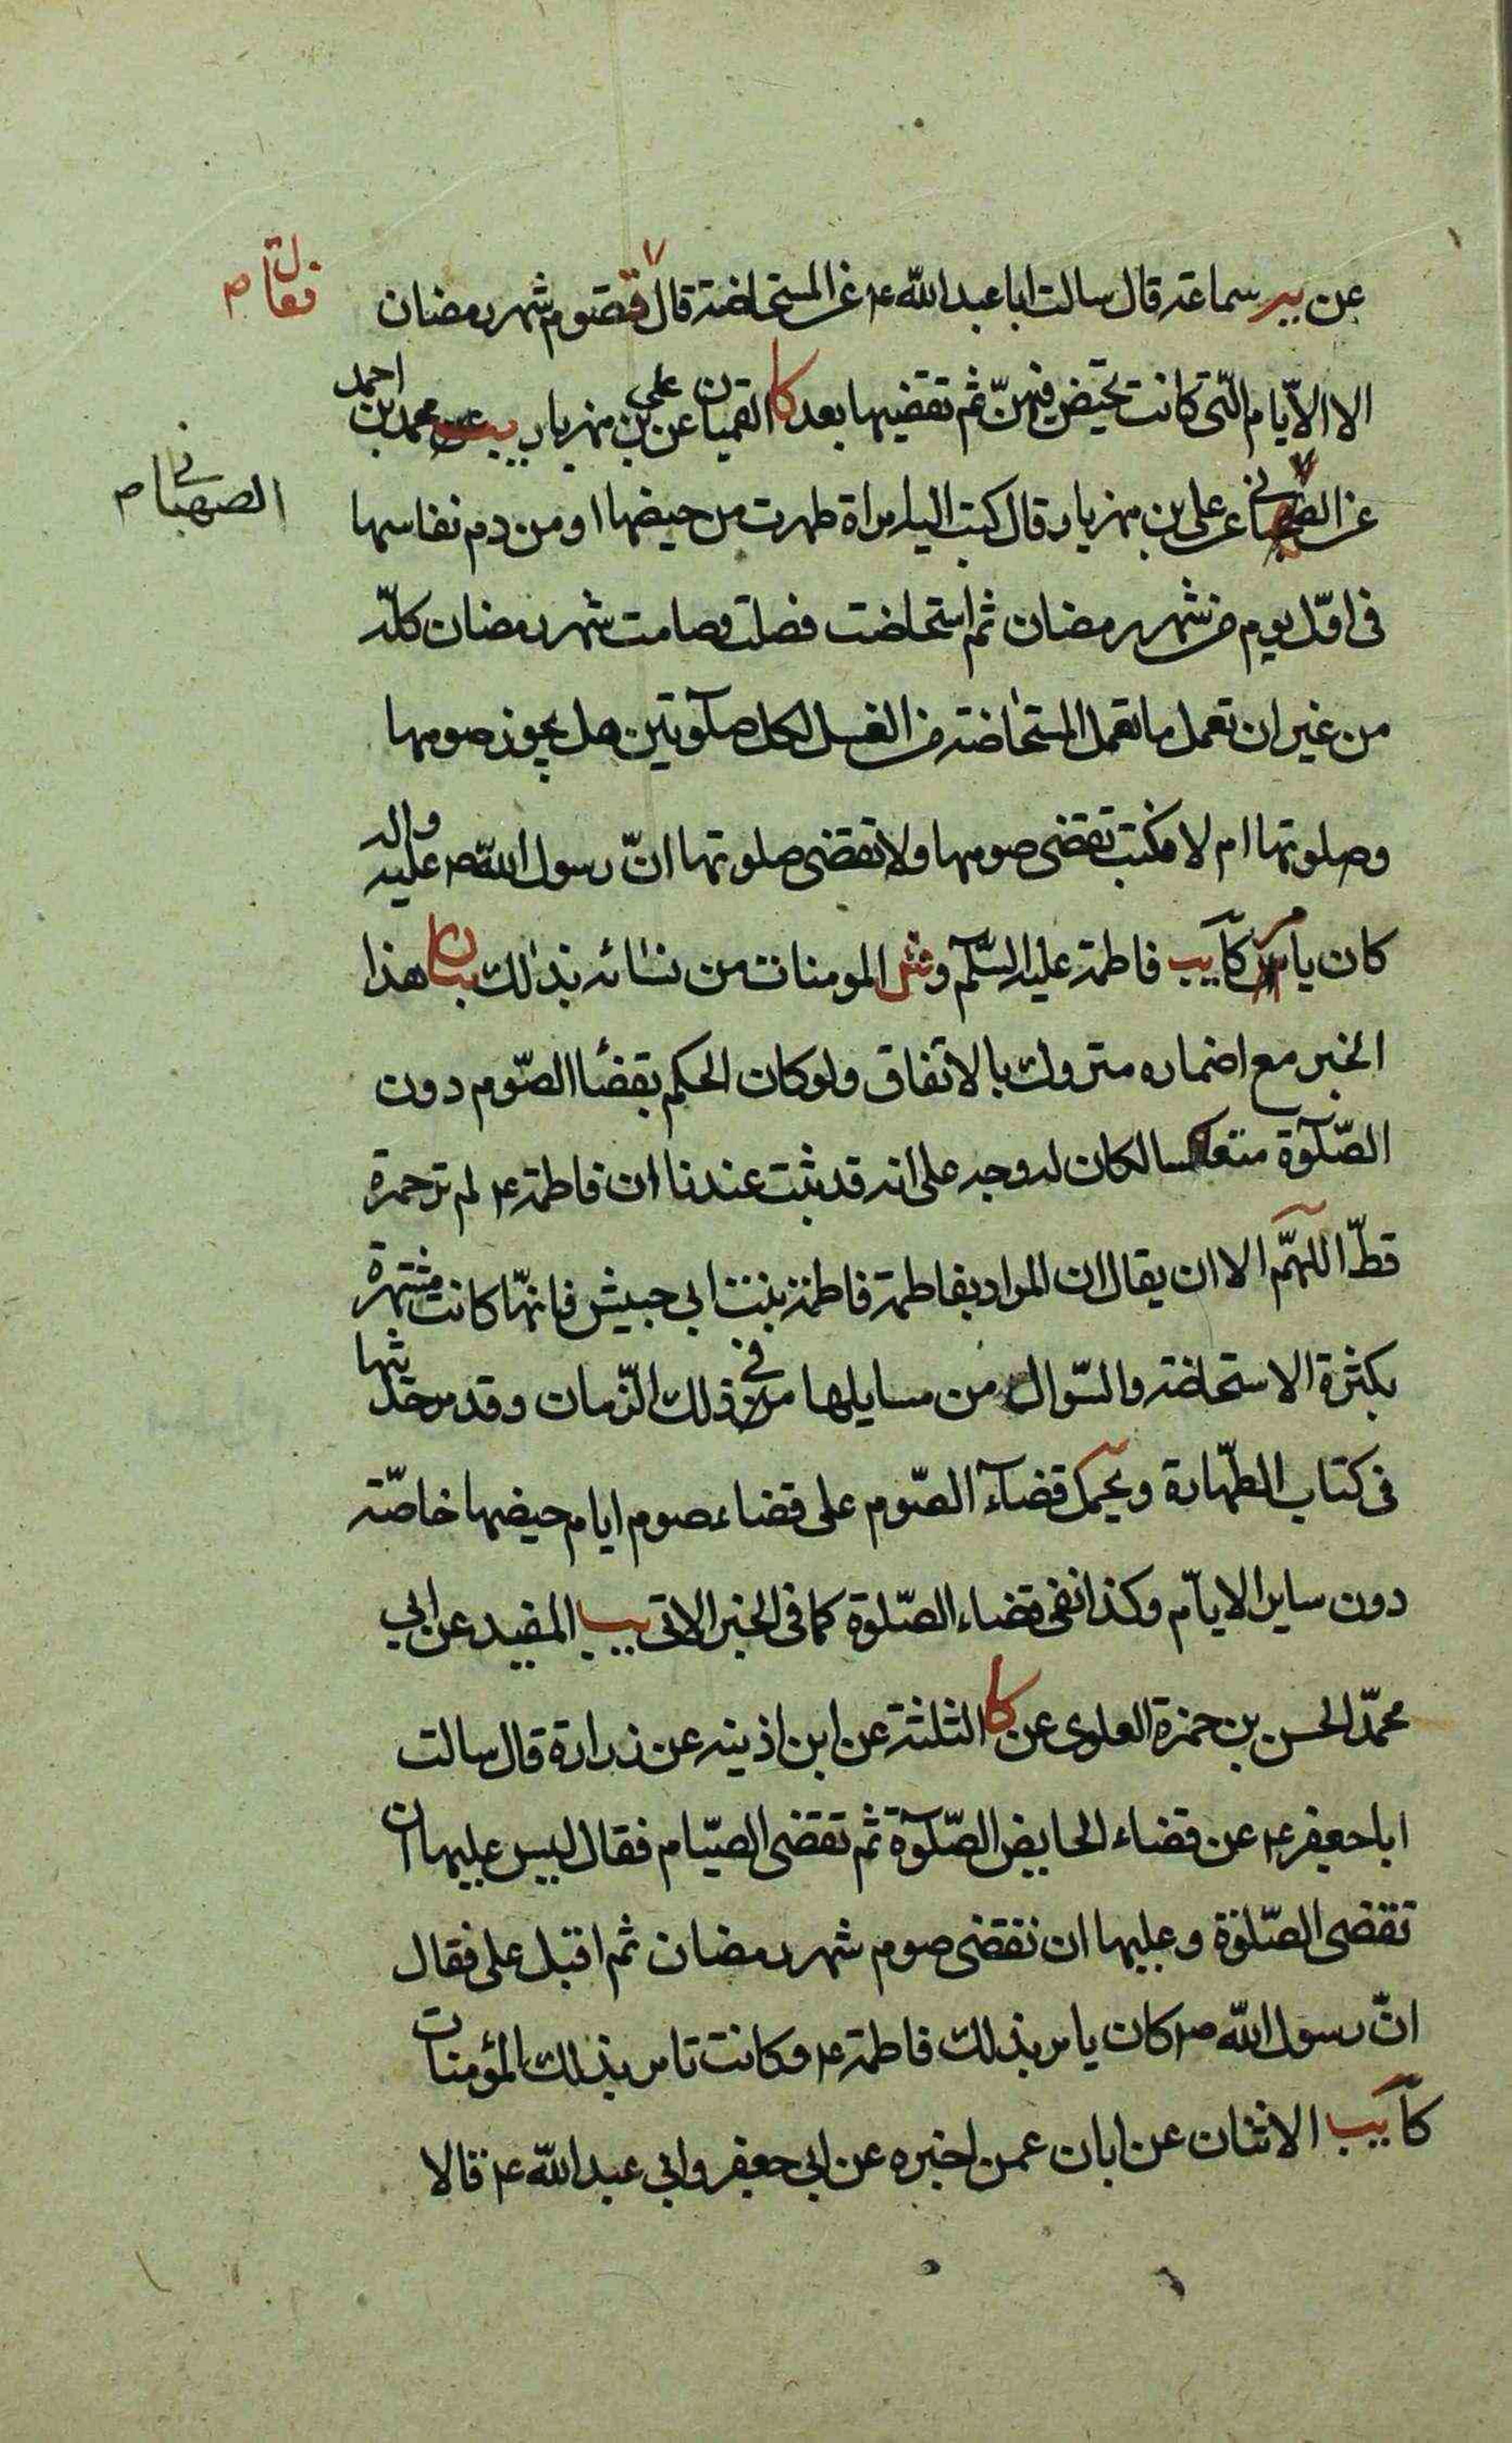 عن يير سماعة قال سالت ابا عبد الله ع عن المستحاضة قال فتصوم شهر رمضان
فقال م
الا الايام التي كانت تحيض فيهن ثم تقضيها بعد كا القميان عن علي بن مهزيار يب عن محمد بن احمد
عن الصهباني عن علي بن مهزيار قال كتبت اليه امراة طهرت من حيضها او من دم نفاسها
الصهباني م
في اول يوم من شهر رمضان ثم استحاضت فصلت وصامت شهر رمضان كله
من غير ان تعمل ما تعمل المستحاضة من الغسل لكل صلوتين هل يجوز صومها
وصلوتها ام لا فكتب تقضي صومها ولا تقضي صلوتها ان رسول الله ص عليه واله
كان يامر كا يب فاطمة عليها السلم و ش المومنات من نسائه بذلك بيان هذا
الخبر مع اضماره متروك بالاتفاق ولو كان الحكم بقضاء الصوم دون
الصلوة منعكسا لكان له وجه على انه قد ثبت عندنا ان فاطمة ع لم تر حمرة
قط اللهم الا ان يقال ان المراد بفاطمة فاطمة بنت ابي حبيش فانها كانت مشتهرة
بكثرة الاستحاضة والسؤال من مسايلها في ذلك الزمان وقد مر حديثها
في كتاب الطهارة ويحمل قضاء الصوم على قضاء صوم ايام حيضها خاصة
دون ساير الايام وكذا نفي قضاء الصلوة كما في الخبر الاتي يب المفيد عن ابي
محمد الحسن بن حمزة العلوي عن كا الثلثة عن ابن اذينه عن زرارة قال سالت
ابا جعفر ع عن قضاء الحايض الصلوة ثم تقضي الصيام فقال ليس عليها ان
تقضي الصلوة وعليها ان تقضي صوم شهر رمضان ثم اقبل علي فقال
ان رسول الله ص كان يامر بذلك فاطمة ع وكانت تامر بذلك المؤمنات
كا يب الاثنان عن ابان عمن اخبره عن ابي جعفر وابي عبد الله ع قالا